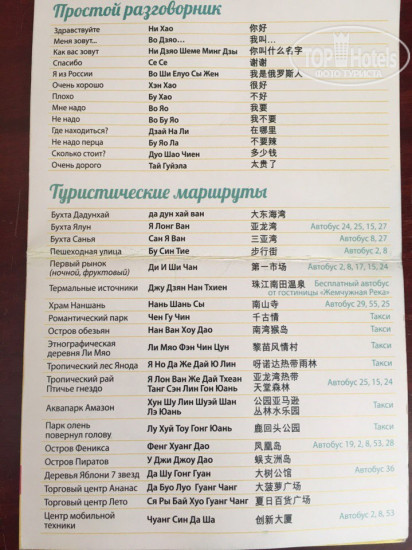 Простой разговорник
Здравствуйте Ни Хао 你好
Меня зовут... Во Дзяо... 我叫...
Как вас зовут Ни Дзяо Шеме Минг Дзы 你叫什么名字
Спасибо Се Се 谢谢
Я из России Во Ши Елуо Сы Жен 我是俄罗斯人
Очень хорошо Хэн Хао 很好
Плохо Бу Хао 不好
Мне надо Во Яо 我要
Не надо Во Бу Яо 我不要
Где находиться? Дзай На Ли 在哪里
Не надо перца Бу Яо Ла 不要辣
Сколько стоит? Дуо Шао Чиен 多少钱
Очень дорого Тай Гуйэла 太贵了
TopHotels
ФОТО ТУРИСТА
Туристические маршруты
Бухта Дадунхай да дун хай ван 大东海湾
Бухта Ялун Я Лонг Ван 亚龙湾 Автобус 24, 25, 15, 27
Бухта Санья Сан Я Ван 三亚湾 Автобус 8, 27
Пешеходная улица Бу Син Тие 步行街 Автобус 2, 8
Первый рынок
(ночной, фруктовый) Ди И Ши Чан 第一市场 Автобус 2, 8, 17, 15, 24
Термальные источники Джу Дзян Нан Тхиен 珠江南田温泉 Бесплатный автобус
от гостиницы «Жемчужная Река»
Храм Наншань Нань Шань Сы 南山寺 Автобус 29, 55, 25
Романтический парк Чен Гу Чин 千古情 Такси
Остров обезьян Нан Ван Хоу Дао 南湾猴岛 Такси
Этнографическая
деревня Ли Мяо Ли Мяо Фэн Чин Цун 黎苗风情村 Такси
Тропический лес Янода Я Но Да Же Дай Ю Лин 呀诺达热带雨林 Такси
Тропический рай
Птичье гнездо Я Лон Ван Же Дай Тхеан
Танг Сэн Лин Гон Юань 亚龙湾热带
天堂森林 Автобус 25, 15, 24
Аквапарк Амазон Хун Шу Лин Шуэй Шан
Лэ Юань 公园亚马逊
丛林水乐园 Такси
Парк олень
повернул голову Лу Хуй Тоу Гонг Юань 鹿回头公园 Такси
Остров Феникса Фенг Хуанг Дао 凤凰岛 Автобус 19, 2, 8, 53, 28
Остров Пиратов У Джи Джоу Дао 蜈支洲岛
Деревья Яблони 7 звезд Да Шу Гонг Гуан 大树公馆 Автобус 36
Торговый центр Ананас Да Бо Луо Гуанг Чанг 大菠萝广场
Торговый центр Лето Ся Ры Бай Хуо Гуанг Чанг 夏日百货广场
Центр мобильной
техники Чуанг Син Да Ша 创新大厦 Автобус 2, 8, 53